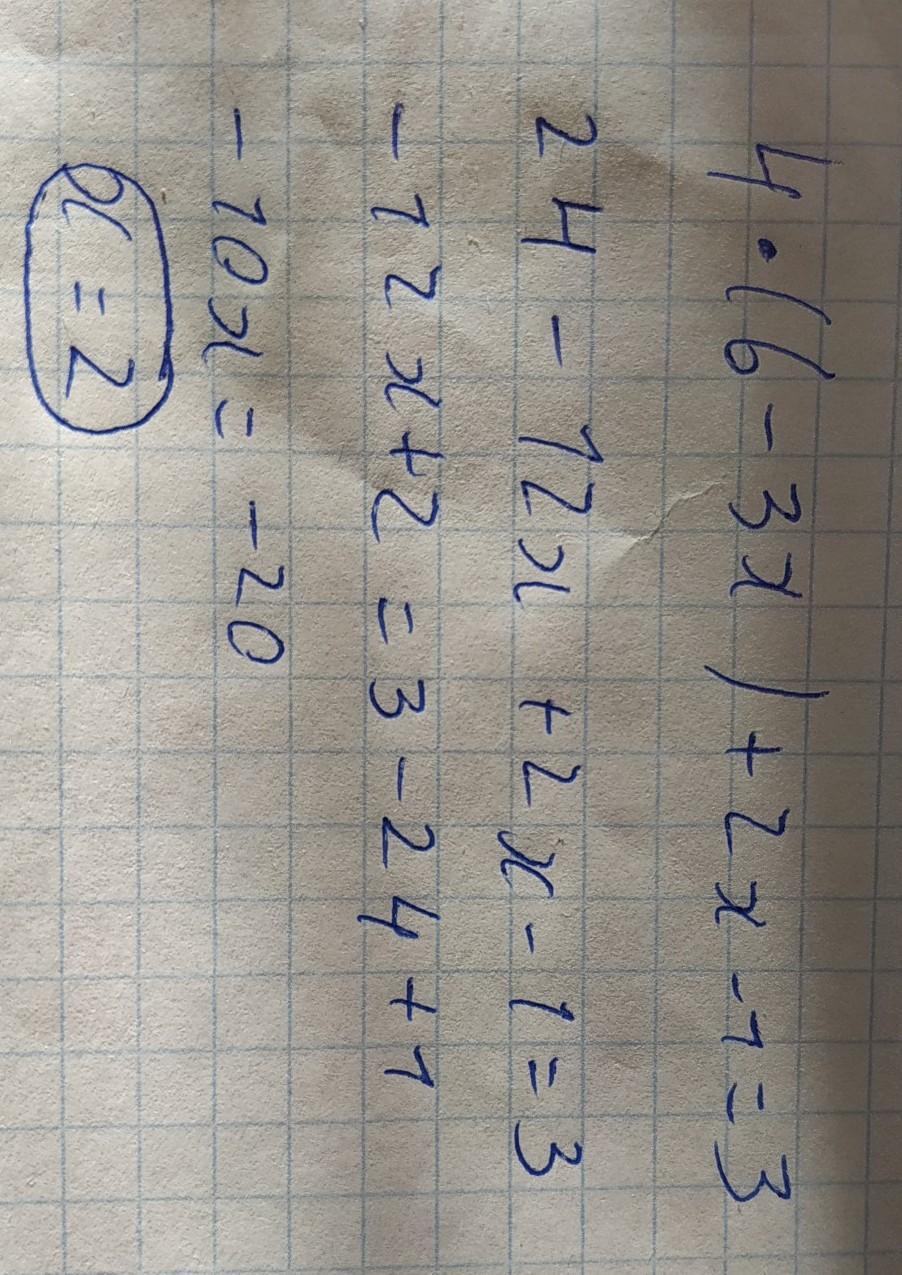 4·(6-3x)+2x-1=3
24-12x+2x-1=3
-12x+2=3-24+1
-10x=-20
x=2